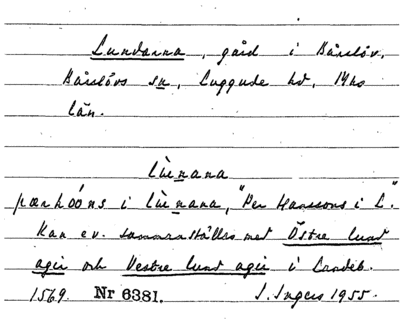 Lundarna, gård i Kårslöv.
Kårslövs sn, Luggude hd, Mhs
län.
lùenana
pærhóóns i lùenana, "Per Hanssons i L."
Kan ev. sammanställas med Östre lund
agir och Vestre lund agir i Landeb.
1569. Nr 6381. I. Ingers 1955.